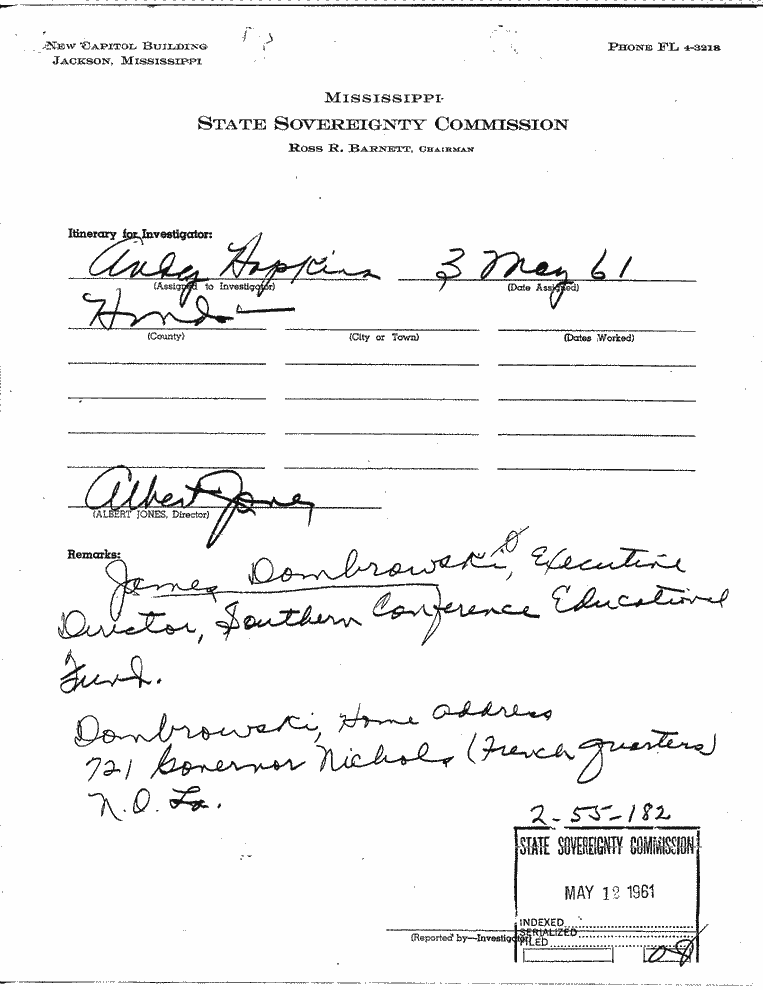 NEW CAPITOL BUILDING
JACKSON, MISSISSIPPI
PHONE FL 4-3218
MISSISSIPPI
STATE SOVEREIGNTY COMMISSION
ROSS R. BARNETT, CHAIRMAN
Itinerary for Investigator:
Andy Hopkins 3 May 61
(Assigned to Investigator) (Date Assigned)
Hinds
(County) (City or Town) (Dates Worked)
Albert Jones
(ALBERT JONES, Director)
Remarks:
James Dombrowski, Executive
Director, Southern Conference Educational
Fund.
Dombrowski, Home address
721 Governor Nichols (French quarters)
N.O. La.
2-55-182
STATE SOVEREIGNTY COMMISSION
MAY 12 1961
INDEXED
SERIALIZED
(Reported by—Investigator)
FILED
08